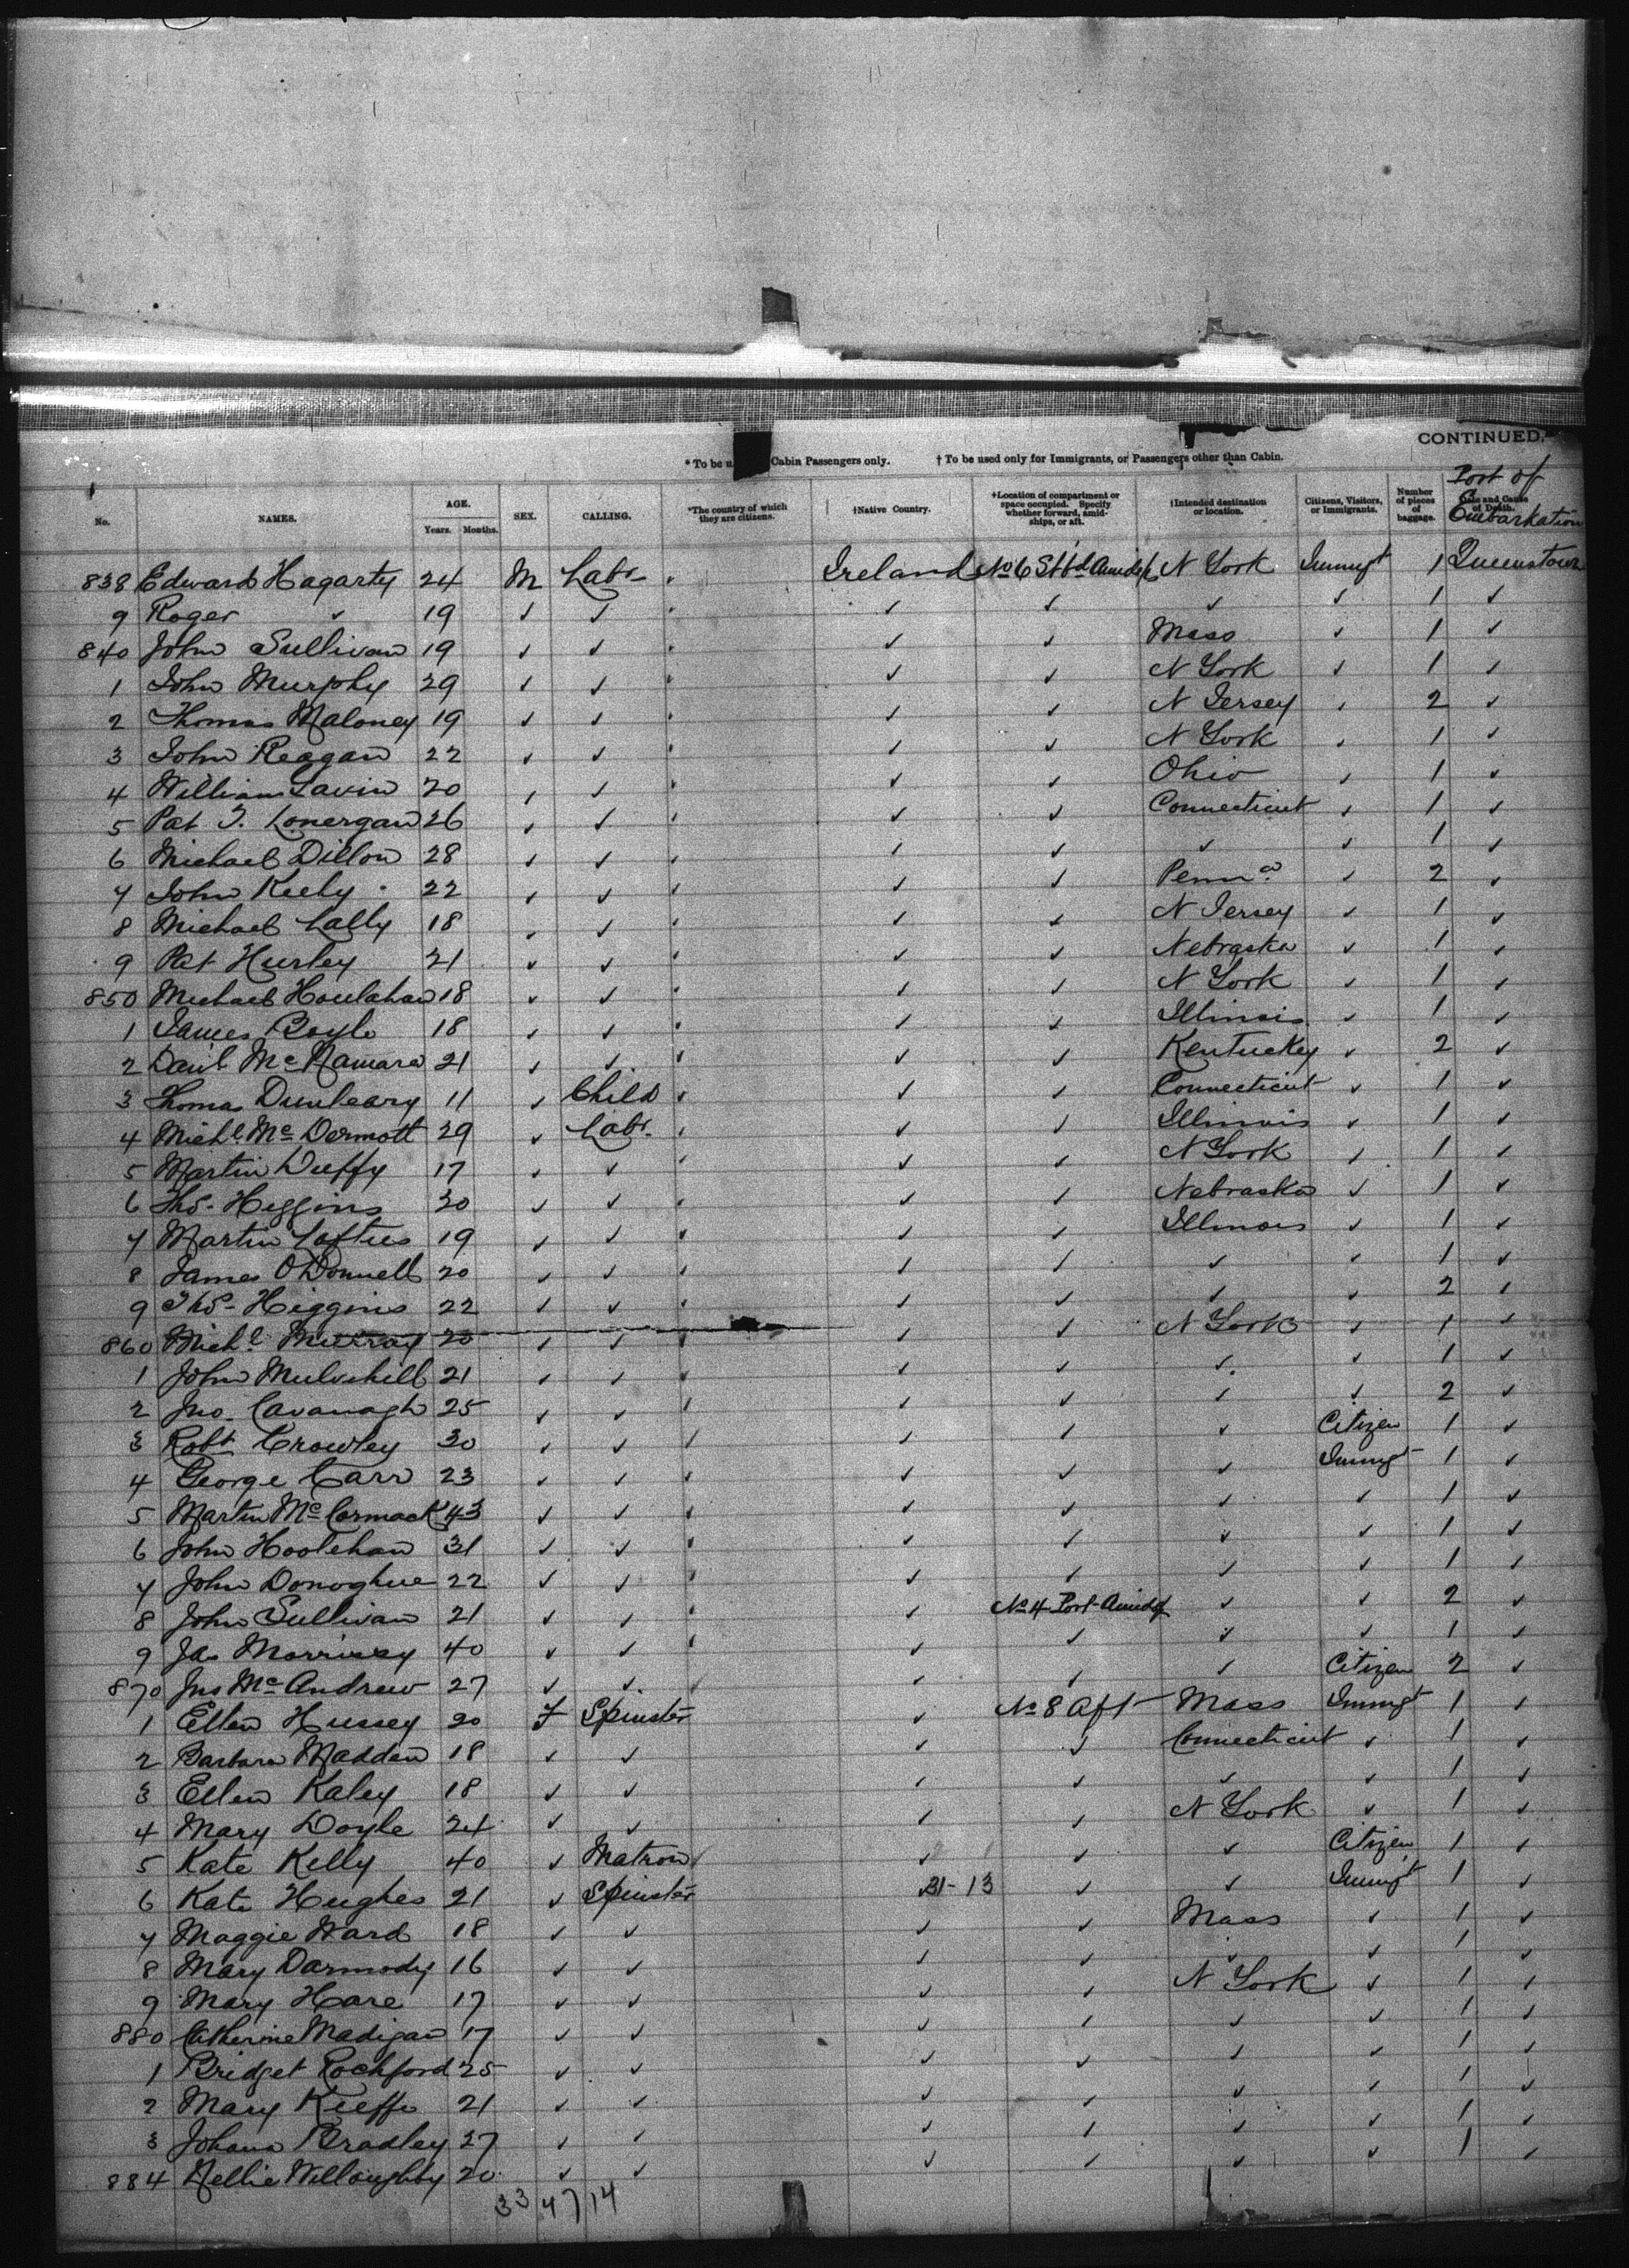 CONTINUED.
* To be u Cabin Passengers only. † To be used only for Immigrants, or Passengers other than Cabin.
Port of Embarkation
No. NAMES. AGE. Years. Months. SEX. CALLING. *The country of which they are citizens. †Native Country. †Location of compartment or space occupied. Specify whether forward, amidships, or aft. †Intended destination or location. Citizens, Visitors, or Immigrants. Number of pieces of baggage. Date and Cause of Death.
838 Edward Hagarty 24 M Labr Ireland No 6 Stbd Amids N York Immgt 1 Queenstown
9 Roger ✓ 19 ✓ ✓ ✓ ✓ ✓ ✓ 1 ✓
840 John Sullivan 19 ✓ ✓ ✓ ✓ Mass ✓ 1 ✓
1 John Murphy 29 ✓ ✓ ✓ ✓ N York ✓ 1 ✓
2 Thomas Maloney 19 ✓ ✓ ✓ ✓ N Jersey ✓ 2 ✓
3 John Reagan 22 ✓ ✓ ✓ ✓ N York ✓ 1 ✓
4 William Lavin 20 ✓ ✓ ✓ ✓ Ohio ✓ 1 ✓
5 Pat J. Lonergan 26 ✓ ✓ ✓ ✓ Connecticut ✓ 1 ✓
6 Michael Dillon 28 ✓ ✓ ✓ ✓ ✓ ✓ 1 ✓
7 John Kiely 22 ✓ ✓ ✓ ✓ Penna ✓ 2 ✓
8 Michael Lally 18 ✓ ✓ ✓ ✓ N Jersey ✓ 1 ✓
9 Pat Hurley 21 ✓ ✓ ✓ ✓ Nebraska ✓ 1 ✓
850 Michael Houlahan 18 ✓ ✓ ✓ ✓ N York ✓ 1 ✓
1 James Boyle 18 ✓ ✓ ✓ ✓ Illinois ✓ 1 ✓
2 Danl McNamara 21 ✓ ✓ ✓ ✓ Kentucky ✓ 2 ✓
3 Thomas Dunleavy 11 ✓ Child ✓ ✓ Connecticut ✓ 1 ✓
4 Michl McDermott 29 ✓ Labr ✓ ✓ Illinois ✓ 1 ✓
5 Martin Duffy 17 ✓ ✓ ✓ ✓ N York ✓ 1 ✓
6 Thos Higgins 30 ✓ ✓ ✓ ✓ Nebraska ✓ 1 ✓
7 Martin Loftus 19 ✓ ✓ ✓ ✓ Illinois ✓ 1 ✓
8 James O'Donnell 20 ✓ ✓ ✓ ✓ ✓ ✓ 1 ✓
9 Thos Higgins 22 ✓ ✓ ✓ ✓ ✓ ✓ 2 ✓
860 Michl Murray 20 ✓ ✓ ✓ ✓ N York ✓ 1 ✓
1 John Mulvehill 21 ✓ ✓ ✓ ✓ ✓ ✓ 1 ✓
2 Jno Cavanagh 25 ✓ ✓ ✓ ✓ ✓ ✓ 2 ✓
3 Robt Crowley 30 ✓ ✓ ✓ ✓ ✓ Citizen 1 ✓
4 George Carr 23 ✓ ✓ ✓ ✓ ✓ Immgt 1 ✓
5 Martin McCormack 43 ✓ ✓ ✓ ✓ ✓ ✓ 1 ✓
6 John Hoolehan 31 ✓ ✓ ✓ ✓ ✓ ✓ 1 ✓
7 John Donoghue 22 ✓ ✓ ✓ ✓ ✓ ✓ 1 ✓
8 John Sullivan 21 ✓ ✓ ✓ No 4 Port Amids ✓ ✓ 2 ✓
9 Jas Morrissy 40 ✓ ✓ ✓ ✓ ✓ ✓ 1 ✓
870 Jno McAndrew 27 ✓ ✓ ✓ ✓ ✓ Citizen 2 ✓
1 Ellen Hussey 20 F Spinster ✓ No 8 Aft Mass Immgt 1 ✓
2 Barbara Madden 18 ✓ ✓ ✓ ✓ Connecticut ✓ 1 ✓
3 Ellen Kaley 18 ✓ ✓ ✓ ✓ ✓ ✓ 1 ✓
4 Mary Doyle 24 ✓ ✓ ✓ ✓ N York ✓ 1 ✓
5 Kate Kelly 40 ✓ Matron ✓ ✓ ✓ Citizen 1 ✓
6 Kate Hughes 21 ✓ Spinster ✓ 31-13 ✓ ✓ Immgt 1 ✓
7 Maggie Ward 18 ✓ ✓ ✓ ✓ Mass ✓ 1 ✓
8 Mary Darmody 16 ✓ ✓ ✓ ✓ ✓ ✓ 1 ✓
9 Mary Hare 17 ✓ ✓ ✓ ✓ N York ✓ 1 ✓
880 Catherine Madigan 17 ✓ ✓ ✓ ✓ ✓ ✓ 1 ✓
1 Bridget Rochford 25 ✓ ✓ ✓ ✓ ✓ ✓ 1 ✓
2 Mary Kieffe 21 ✓ ✓ ✓ ✓ ✓ ✓ 1 ✓
3 Johana Bradley 27 ✓ ✓ ✓ ✓ ✓ ✓ 1 ✓
884 Nellie Willoughby 20 ✓ ✓ ✓ ✓ ✓ ✓ 1 ✓
33 47 14